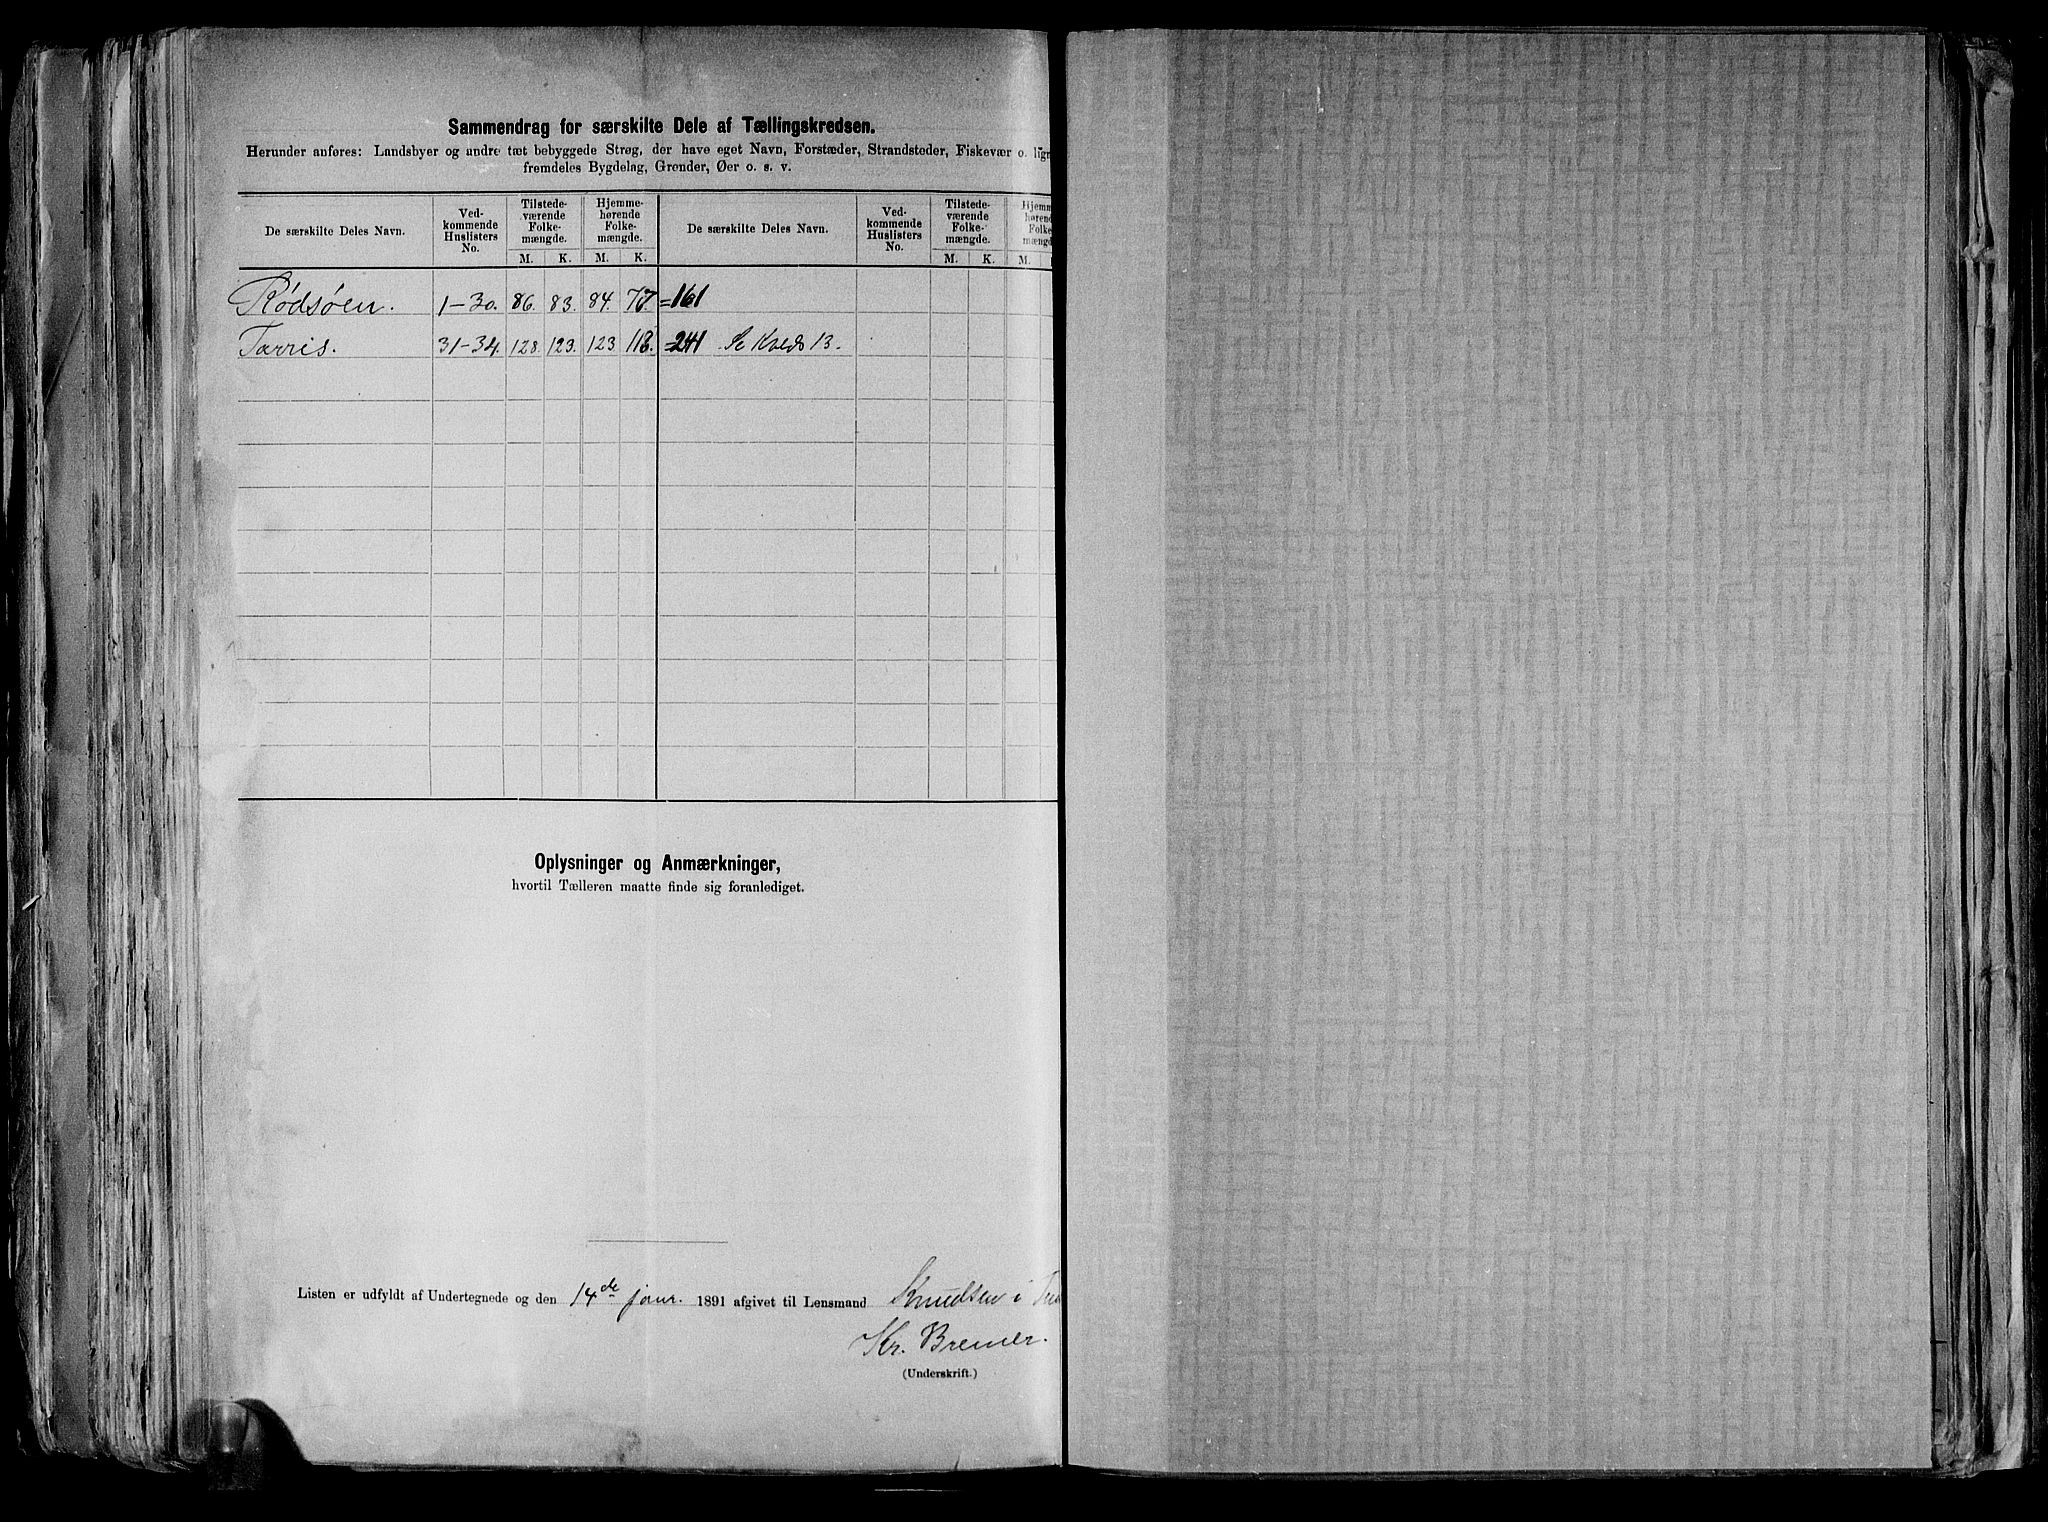 Sammendrag for særskilte Dele af Tællingskredsen.
Herunder anføres: Landsbyer og andre tæt bebyggede Strøg, der have eget Navn, Forstæder, Strandsteder, Fiskevær o. lign
fremdeles Bygdelag, Grender, Øer o. s. v.
De særskilte Deles Navn. Ved-kommende Huslisters No. Tilstede-værende Folke-mængde. Hjemme-hørende Folke-mængde. De særskilte Deles Navn. Ved-kommende Huslisters No. Tilstede-værende Folke-mængde. Hjemm hørend Folke mængd
M. K. M. K. M. K. M.
Rødsøen. 1-30. 86. 83. 84. 77. =161
Tarris. 31-34. 128. 123. 123 118. =241 Se Kreds 13.
Oplysninger og Anmærkninger,
hvortil Tælleren maatte finde sig foranlediget.
Listen er udfyldt af Undertegnede og den 14de janr. 1891 afgivet til Lensmand Knudsen i
Kr. Bremer.
(Underskrift.)